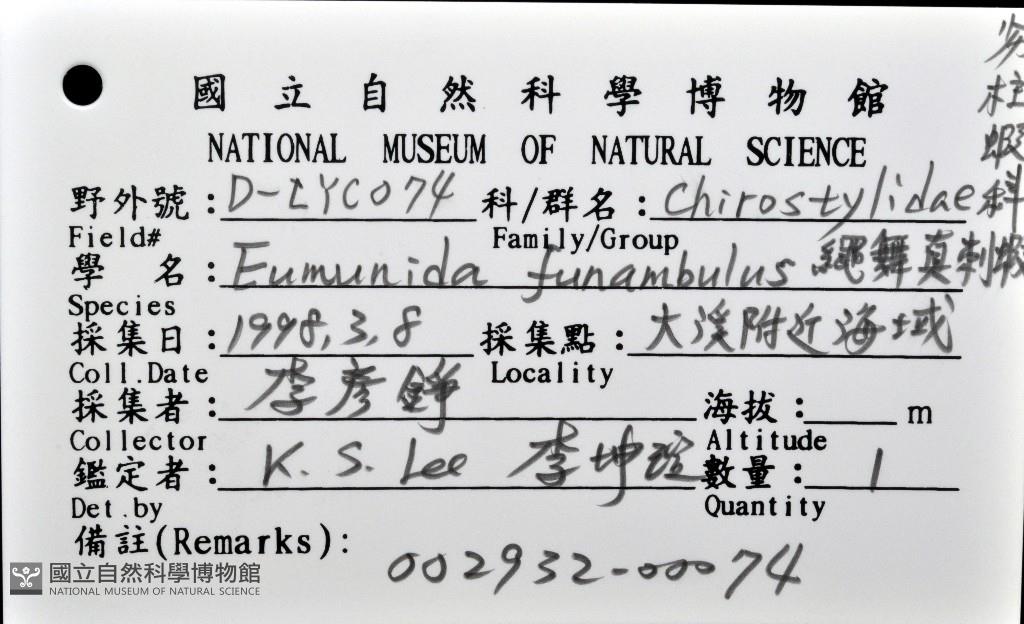 國立自然科學博物館
NATIONAL MUSEUM OF NATURAL SCIENCE
野外號：D-LYC074 科/群名：Chirostylidae 柱蝦科
Field# Family/Group
學 名：Eumunida funambulus 繩舞真刺蝦
Species
採集日：1998,3,8 採集點：大溪附近海域
Coll.Date Locality
採集者：李彥錚 海拔： m
Collector Altitude
鑑定者：K. S. Lee 李坤瑄 數量：1
Det.by Quantity
備註(Remarks)：
002932-00074
國立自然科學博物館
NATIONAL MUSEUM OF NATURAL SCIENCE